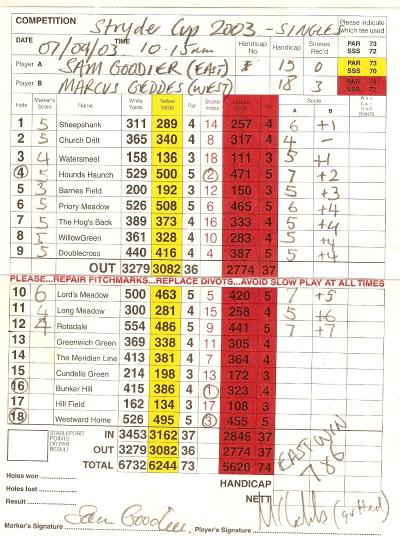 COMPETITION Stryder Cup 2003 - SINGLES Please indicate which tee used
DATE 07/09/03 TIME 10.15am Handicap No. Handicap Strokes Rec'd PAR 73 SSS 72
Player A SAM GOODIER (EAST) 15 0 PAR 73 SSS 70
Player B MARCUS GEDDES (WEST) 18 3 PAR 74 SSS 72
Hole Marker's Score Name White Yards Yellow Yards Par Stroke Index Ladies Yards Par Score A B W = + L = - H = 0 POINTS
1 5 Sheepshank 311 289 4 14 257 4 6 +1
2 5 Church Drift 365 340 4 8 317 4 4 -
3 4 Watersmeet 158 136 3 18 111 3 5 +1
4 5 Hounds Haunch 529 500 5 2 471 5 7 +2
5 3 Barnes Field 200 192 3 12 150 3 5 +3
6 5 Priory Meadow 526 508 5 6 465 5 6 +4
7 5 The Hog's Back 389 373 4 16 333 4 5 +4
8 5 WillowGreen 361 328 4 10 283 4 5 +4
9 5 Doublecross 440 416 4 4 387 5 5 +4
OUT 3279 3082 36 2774 37
PLEASE...REPAIR PITCHMARKS...REPLACE DIVOTS...AVOID SLOW PLAY AT ALL TIMES
10 6 Lord's Meadow 500 463 5 5 420 5 7 +5
11 4 Long Meadow 300 281 4 15 258 4 5 +6
12 4 Rotadale 554 486 5 9 441 5 7 +7
13 Greenwich Green 369 338 4 11 305 4
14 The Meridian Line 413 381 4 7 364 4
15 Cundells Green 214 198 3 13 172 3
16 Bunker Hill 415 386 4 1 323 4
17 Hill Field 162 134 3 17 108 3
18 Westward Home 526 495 5 3 455 5
STABLEFORD POINTS OR PAR RESULT
IN 3453 3162 37 2846 37
OUT 3279 3082 36 2774 37
TOTAL 6732 6244 73 5620 74
EAST WIN
7&6
HANDICAP
NETT
Holes won
Holes lost
Result
(gutted)
Marker's Signature Sam Goodier Player's Signature